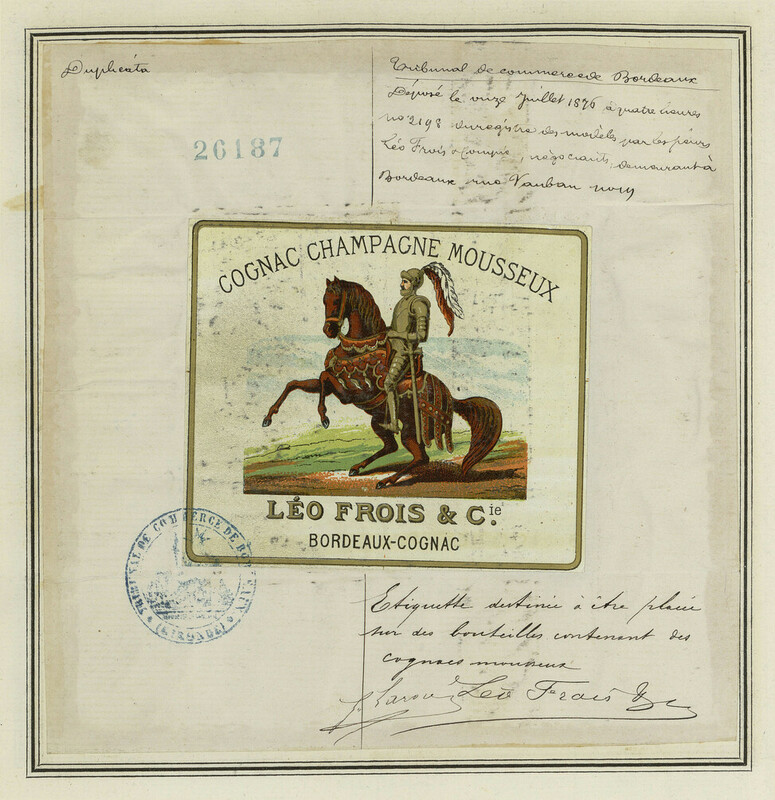 Duplicata
Tribunal de commerce de Bordeaux
Déposé le onze Juillet 1876 à quatre heures
no 2198 du registre des modèles par les sieurs
Léo Frois & Compie, négociants, demeurant à
Bordeaux rue Vauban no 19
26187
COGNAC CHAMPAGNE MOUSSEUX
LÉO FROIS & C.ie
BORDEAUX-COGNAC
TRIBUNAL DE COMMERCE DE BORDEAUX
(GIRONDE)
Etiquette destinée à être placée
sur des bouteilles contenant des
cognacs mousseux
Léo Frois